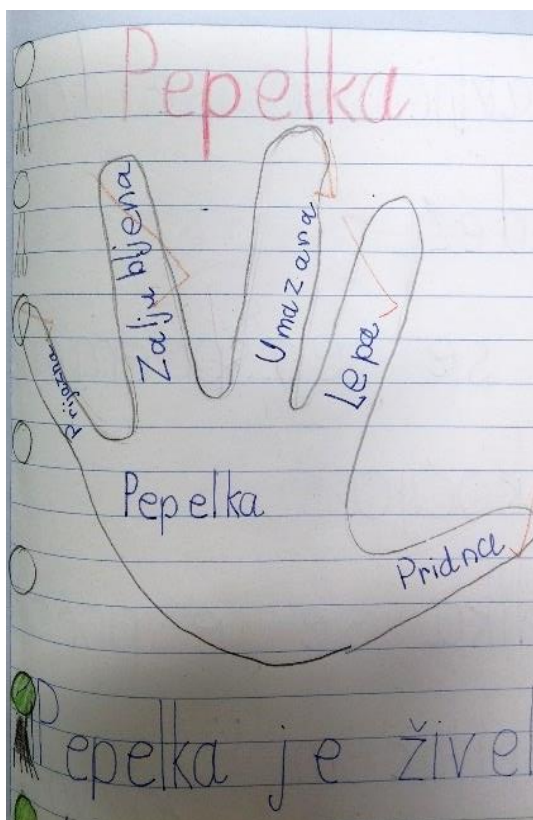 Pepelka
Prijazna
Zaljubljena
Umazana
Lepa
Pridna
Pepelka
Pepelka je živel